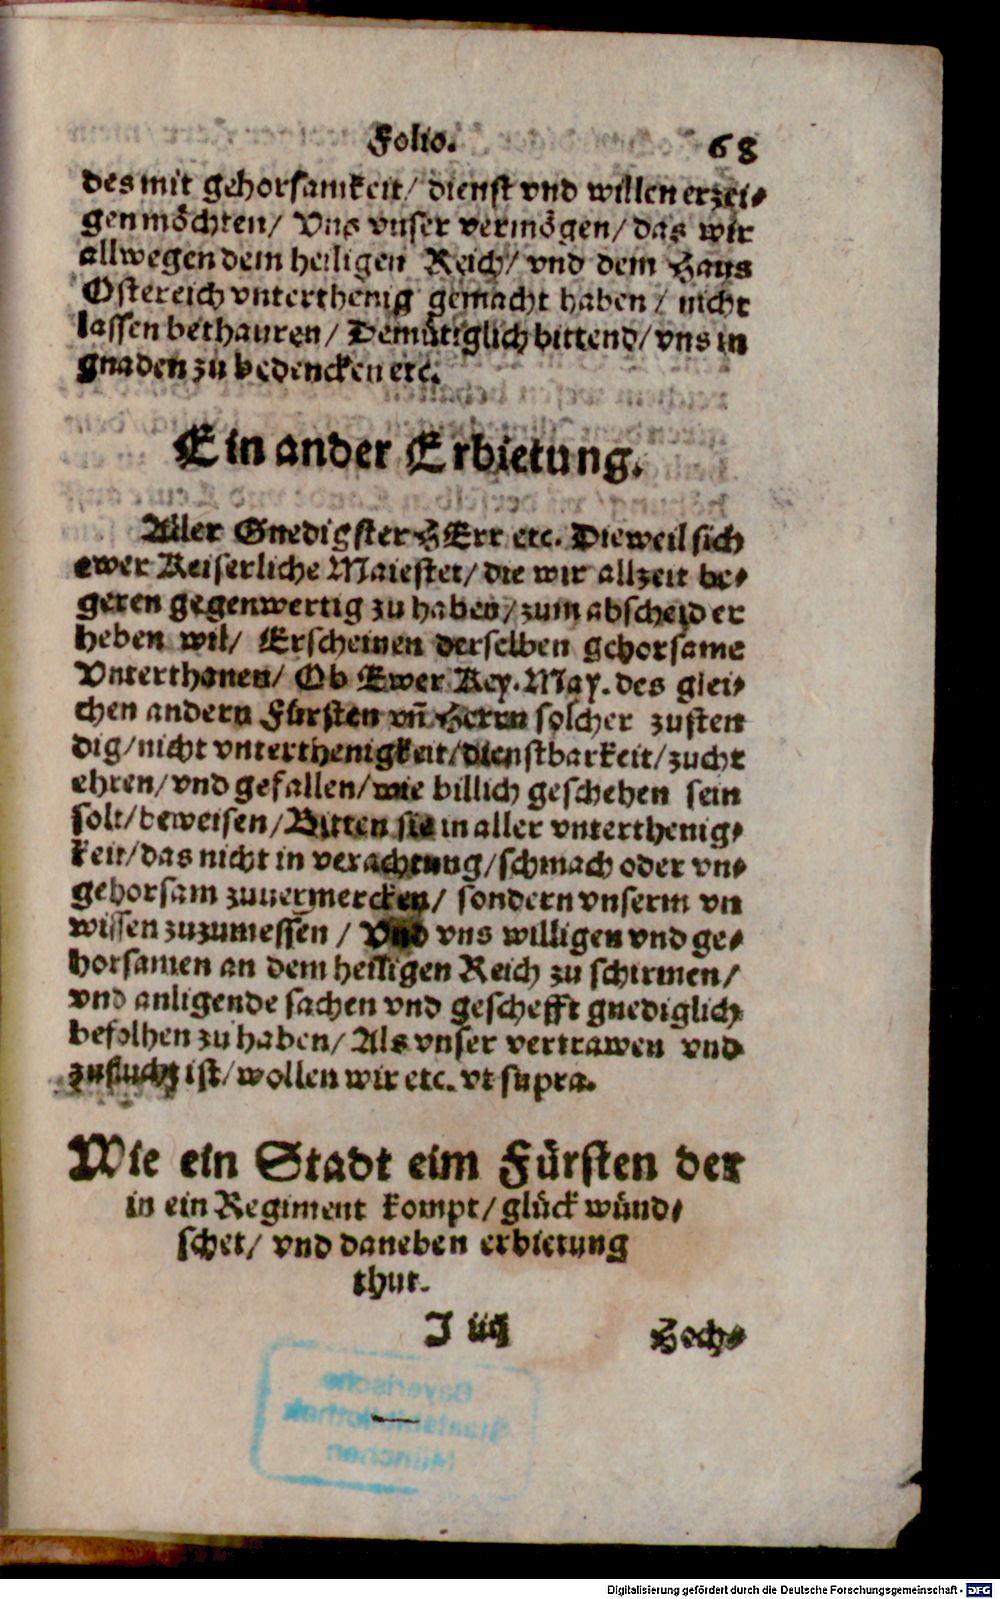 Folio. 68
des mit gehorsamkeit/ dienst vnd willen erzei⸗
gen möchten/ Vns vnser vermögen/ das wir
allwegen dem heiligen Reich/ vnd dem Haus
Ostereich vnterthenig gemacht haben/ nicht
lassen bethauren/ Demütiglich bittend/ vns in
gnaden zu bedencken etc.
Ein ander Erbietung.
Aller Gnedigster HErr etc. Dieweil sich
ewer Keiserliche Maiestet/ die wir allzeit be⸗
geren gegenwertig zu haben/ zum abscheid er
heben wil/ Erscheinen derselben gehorsame
Vnterthanen/ Ob Ewer Key. May. des glei⸗
chen andern Fürsten vn̄ Herrn solcher zusten
dig/ nicht vnterthenigkeit/ dienstbarkeit/ zucht
ehren/ vnd gefallen/ wie billich geschehen sein
solt/ beweisen/ Bitten sie in aller vnterthenig⸗
keit/ das nicht in verachtung/ schmach oder vn⸗
gehorsam zuuermercken/ sondern vnserm vn
wissen zuzumessen / Vnd vns willigen vnd ge⸗
horsamen an dem heiligen Reich zu schirmen/
vnd anligende sachen vnd geschefft gnediglich
befolhen zu haben/ Als vnser vertrawen vnd
zuflucht ist/ wollen wir etc. vt supra.
Wie ein Stadt eim Fürsten der
in ein Regiment kompt/ glück wünd⸗
schet/ vnd daneben erbietung
thut.
I iiij Hoch⸗
Bayerische
Staatsbibliothek
München
Digitalisierung gefördert durch die Deutsche Forschungsgemeinschaft - DFG